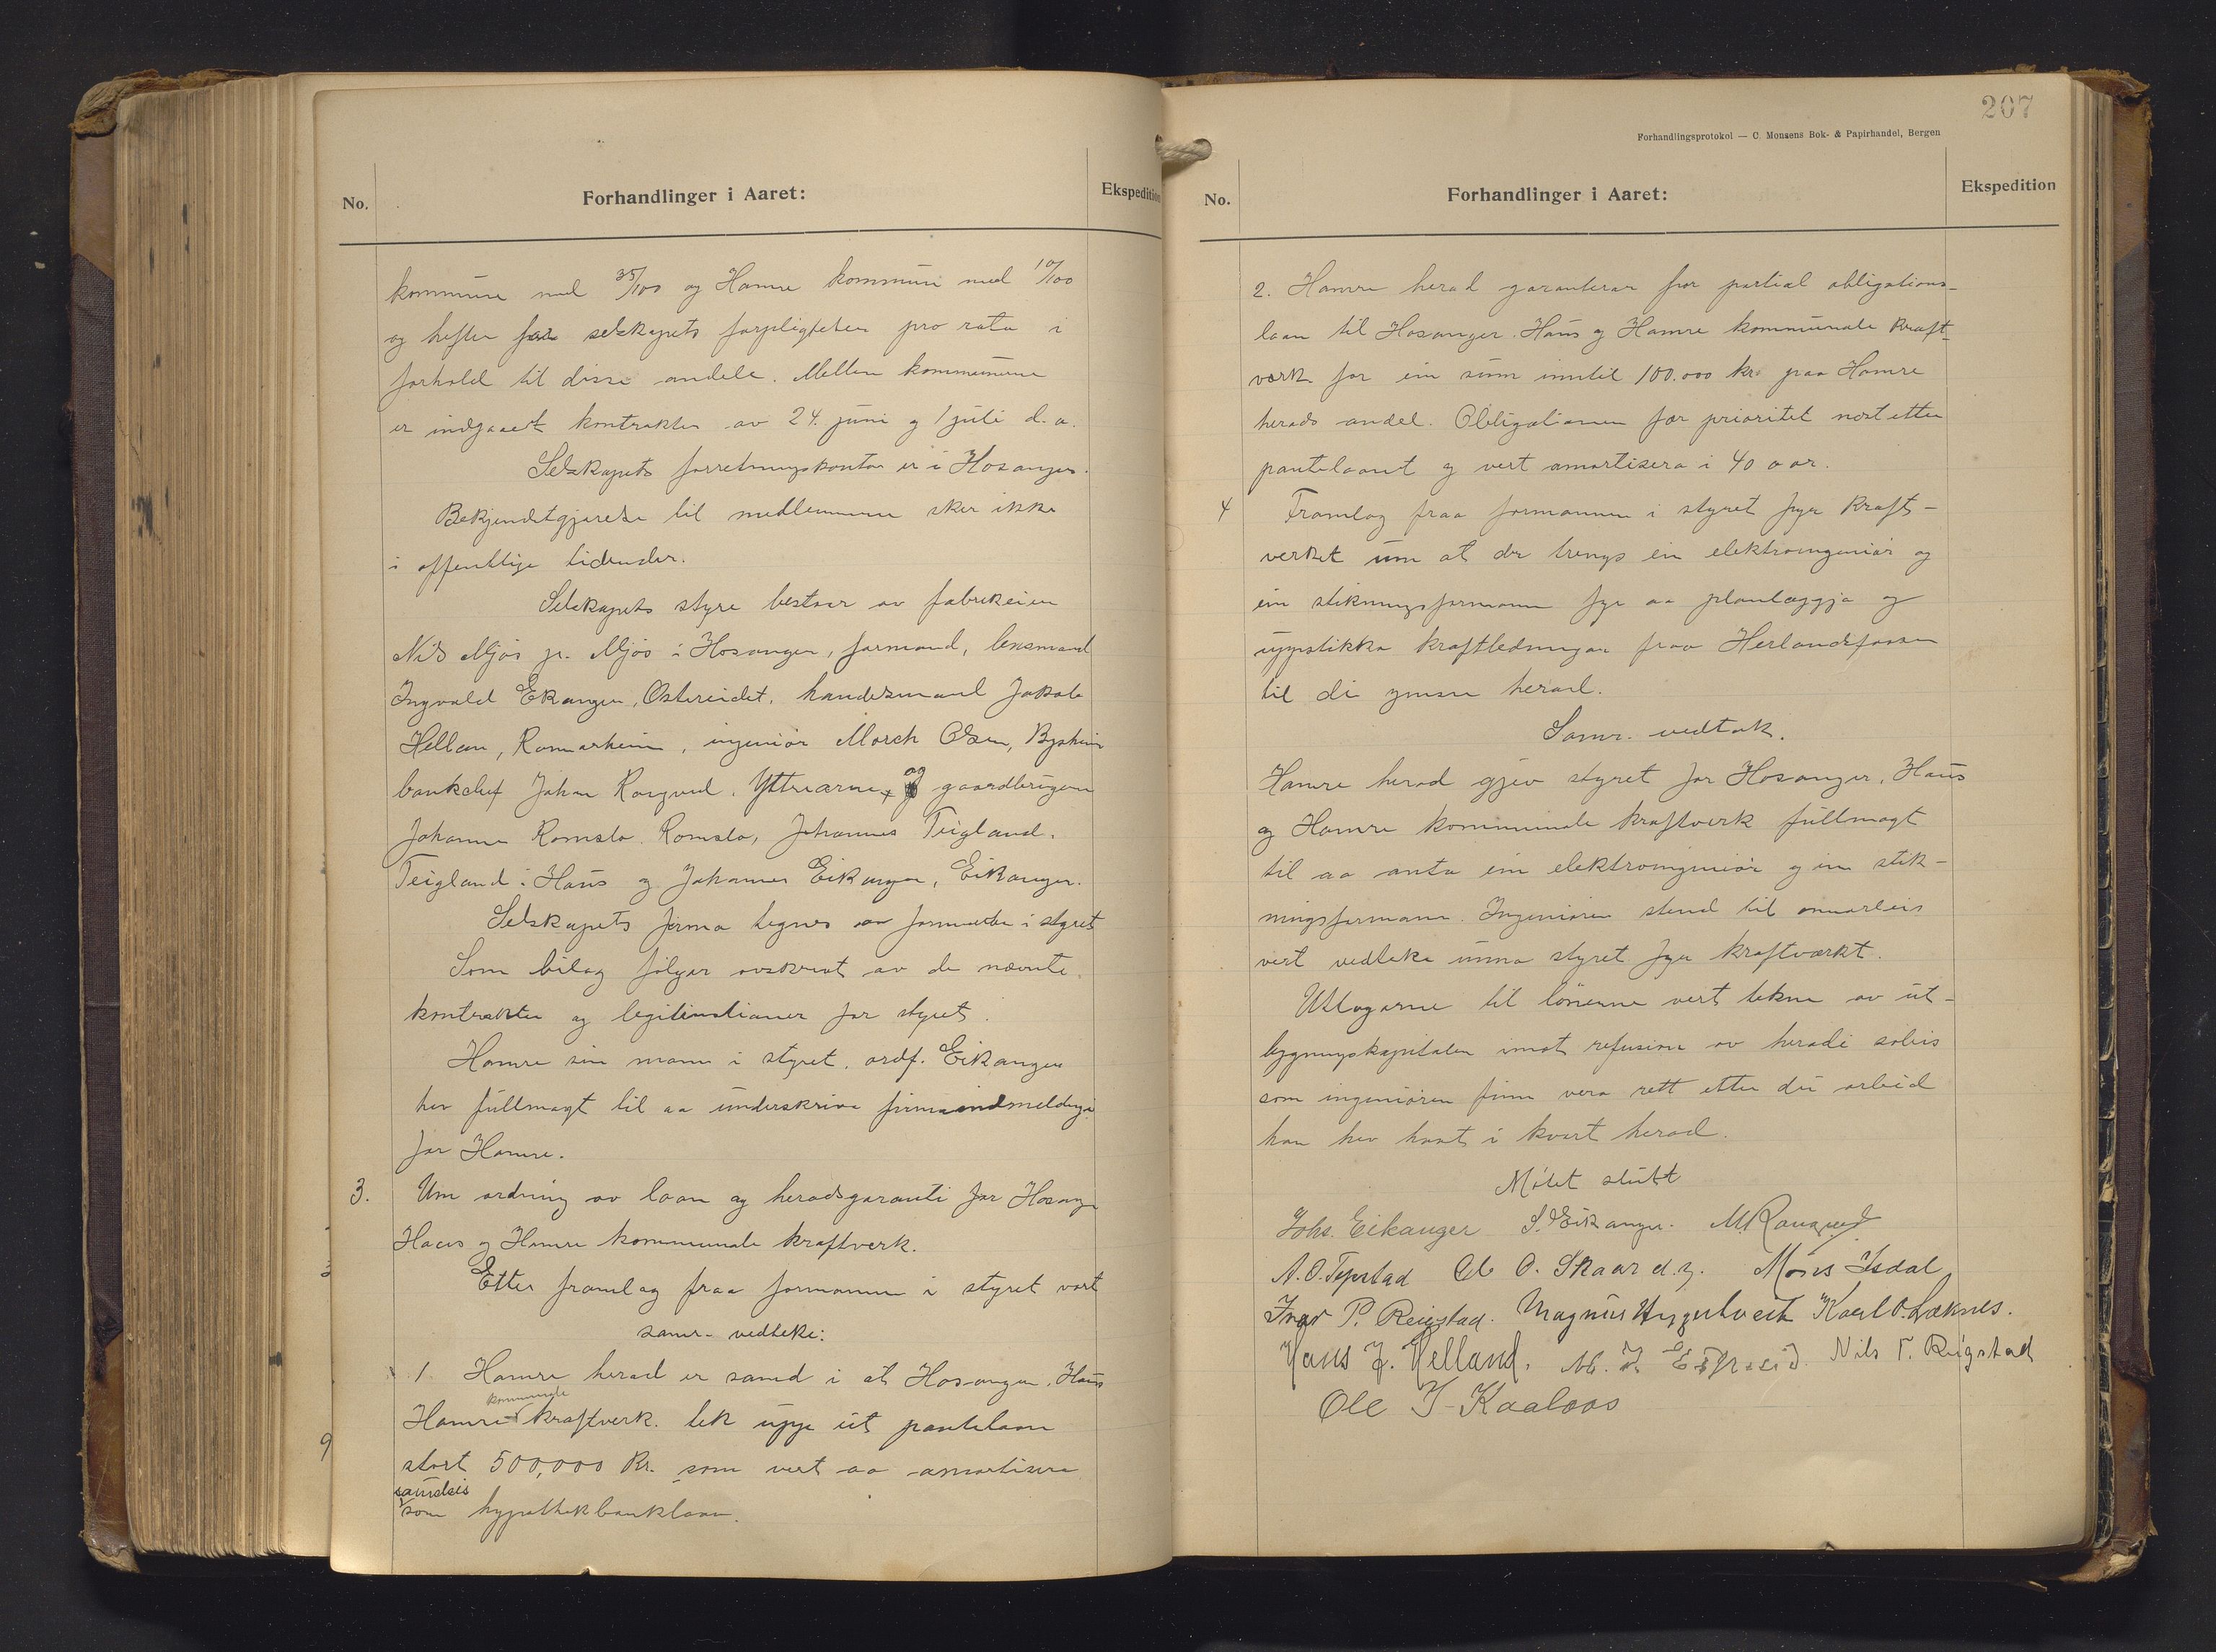 No.
Forhandlinger i Aaret:
Ekspedition
kommune med 35/100 og Hamre kommune med 10/100
og hefter for selskapets forpligtelser pro rata i
forhold til disse andele. Mellem kommunerne
er indgaaet kontrakter av 24. juni og 1 juli d.a.
Selskapets forretningskontor er i Hosanger.
Bekjendtgjørelse til medlemmerne sker ikke
i offentlige tidender.
Selskapets styre bestaar av fabrikeier
Nils Mjøs jr. Mjøs i Hosanger, formand, lensmand
Ingvald Ekanger, Ostereidet, handelsmand Jakob
Helland, Romarheim, ingeniør Morch Olsen,
bankchef Johan Rongved, Ytrearne, og gaardbruger
Johannes Romslo, Romslo, Johannes Teigland,
Teigland i Haus og Johannes Eikanger, Eikanger.
Selskapets firma tegnes av formanden i styret
Som bilag følger avskrivt av de nævnte
kontrakter og legitimationer for styret.
Hamre sin mann i styret, ordf. Eikanger
hev fullmagt til aa underskriva firmaindmeldingi
for Hamre.
3. Um ordning av laan og heradsgaranti for Hosanger
Haus og Hamre kommunale kraftverk.
Etter framlag fraa formannen i styret vart
samr. vedteke:
1. Hamre herad er samd i at Hosanger, Haus
Hamre kommunale kraftverk. tek uppe eit pantelaan
stort 500,000 Kr. som vert aa amortisera
samleis
som hypothekbanklaan.
207
Forhandlingsprotokol — C. Monsens Bok- & Papirhandel, Bergen
No.
Forhandlinger i Aaret:
Ekspedition
2. Hamre herad garanterar for partial obligations-
laan til Hosanger. Haus og Hamre kommunale kraft-
værk for ein sum inntil 100.000 kr. paa Hamre
herads andel. Obligationen fær prioritet næst etter
pantelaanet og vert amortisera i 40 aar.
4 Framlag fraa formannen i styret fyr kraft-
verket um at der trengs ein elektroingeniør og
ein stikningsformann fyr aa planlæggja og
uppstikka kraftledningar fraa Herlandsfossen
til di ymse herad.
Samr. vedtak.
Hamre herad gjev styret for Hosanger, Haus
og Hamre kommunale kraftverk fullmagt
til aa anta ein elektroingeniør og ein stik-
ningsformann. Ingeniøren stend til
vert vedteke unna styret fyr kraftværkt.
Utlogorne til lønerne vert tekne av ut-
bygningskapitalen imot refusion av heradi soleis
som ingeniøren finn vera rett etter dei arbeid
han hev havt i kvart herad.
Møtet slutt
Johs. Eikanger S. Eikanger. M Rongved
A. O. Tepstad O. Skaar d.y. Mons Isdal,
Ivar P. Reigstad. Magnus Karl O. Løknes.
Hans J. Helland. Nils T. Reigstad
Ole J Kaalaas